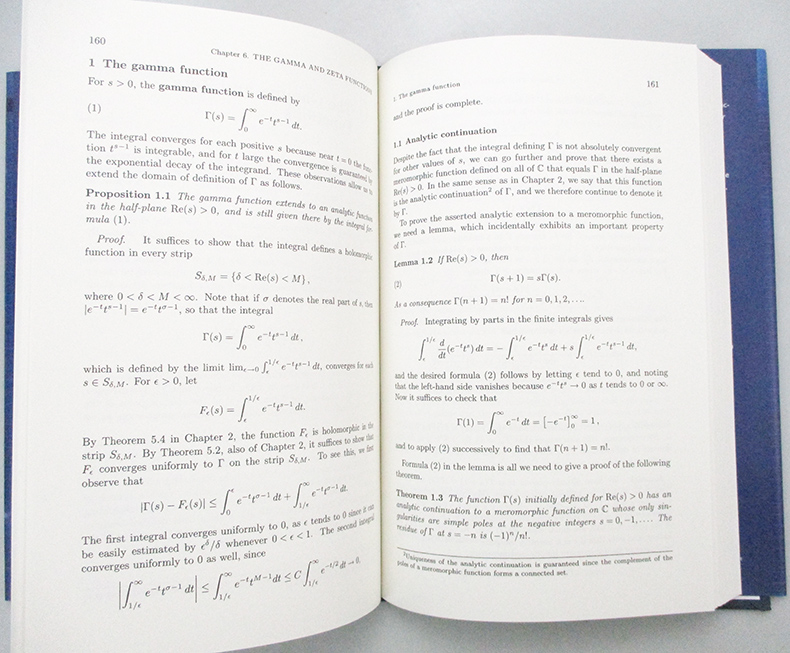 160
Chapter 6. THE GAMMA AND ZETA FUNCTIONS
1 The gamma function
For s > 0, the gamma function is defined by
(1) Γ(s) = ∫_0^∞ e^{-t} t^{s-1} dt.
The integral converges for each positive s because near t = 0 the func-
tion t^{s-1} is integrable, and for t large the convergence is guaranteed by
the exponential decay of the integrand. These observations allow us to
extend the domain of definition of Γ as follows.
Proposition 1.1 The gamma function extends to an analytic function
in the half-plane Re(s) > 0, and is still given there by the integral for-
mula (1).
Proof. It suffices to show that the integral defines a holomorphic
function in every strip
S_{δ,M} = {δ < Re(s) < M},
where 0 < δ < M < ∞. Note that if σ denotes the real part of s, then
|e^{-t} t^{s-1}| = e^{-t} t^{σ-1}, so that the integral
Γ(s) = ∫_0^∞ e^{-t} t^{s-1} dt,
which is defined by the limit lim_{ϵ→0} ∫_ϵ^{1/ϵ} e^{-t} t^{s-1} dt, converges for each
s ∈ S_{δ,M}. For ϵ > 0, let
F_ϵ(s) = ∫_ϵ^{1/ϵ} e^{-t} t^{s-1} dt.
By Theorem 5.4 in Chapter 2, the function F_ϵ is holomorphic in the
strip S_{δ,M}. By Theorem 5.2, also of Chapter 2, it suffices to show that
F_ϵ converges uniformly to Γ on the strip S_{δ,M}. To see this, we first
observe that
|Γ(s) − F_ϵ(s)| ≤ ∫_0^ϵ e^{-t} t^{σ-1} dt + ∫_{1/ϵ}^∞ e^{-t} t^{σ-1} dt.
The first integral converges uniformly to 0, as ϵ tends to 0 since it can
be easily estimated by ϵ^δ/δ whenever 0 < ϵ < 1. The second integral
converges uniformly to 0 as well, since
|∫_{1/ϵ}^∞ e^{-t} t^{σ-1} dt| ≤ ∫_{1/ϵ}^∞ e^{-t} t^{M-1} dt ≤ C ∫_{1/ϵ}^∞ e^{-t/2} dt → 0.
1. The gamma function 161
and the proof is complete.
1.1 Analytic continuation
Despite the fact that the integral defining Γ is not absolutely convergent
for other values of s, we can go further and prove that there exists a
meromorphic function defined on all of ℂ that equals Γ in the half-plane
Re(s) > 0. In the same sense as in Chapter 2, we say that this function
is the analytic continuation² of Γ, and we therefore continue to denote it
by Γ.
To prove the asserted analytic extension to a meromorphic function,
we need a lemma, which incidentally exhibits an important property
of Γ.
Lemma 1.2 If Re(s) > 0, then
(2) Γ(s + 1) = sΓ(s).
As a consequence Γ(n + 1) = n! for n = 0, 1, 2, . . . .
Proof. Integrating by parts in the finite integrals gives
∫_ϵ^{1/ϵ} d/dt (e^{-t} t^s) dt = − ∫_ϵ^{1/ϵ} e^{-t} t^s dt + s ∫_ϵ^{1/ϵ} e^{-t} t^{s-1} dt,
and the desired formula (2) follows by letting ϵ tend to 0, and noting
that the left-hand side vanishes because e^{-t} t^s → 0 as t tends to 0 or ∞.
Now it suffices to check that
Γ(1) = ∫_0^∞ e^{-t} dt = [−e^{-t}]_0^∞ = 1,
and to apply (2) successively to find that Γ(n + 1) = n!.
Formula (2) in the lemma is all we need to give a proof of the following
theorem.
Theorem 1.3 The function Γ(s) initially defined for Re(s) > 0 has an
analytic continuation to a meromorphic function on ℂ whose only sin-
gularities are simple poles at the negative integers s = 0, −1, . . . . The
residue of Γ at s = −n is (−1)^n/n!.
²Uniqueness of the analytic continuation is guaranteed since the complement of the
poles of a meromorphic function forms a connected set.